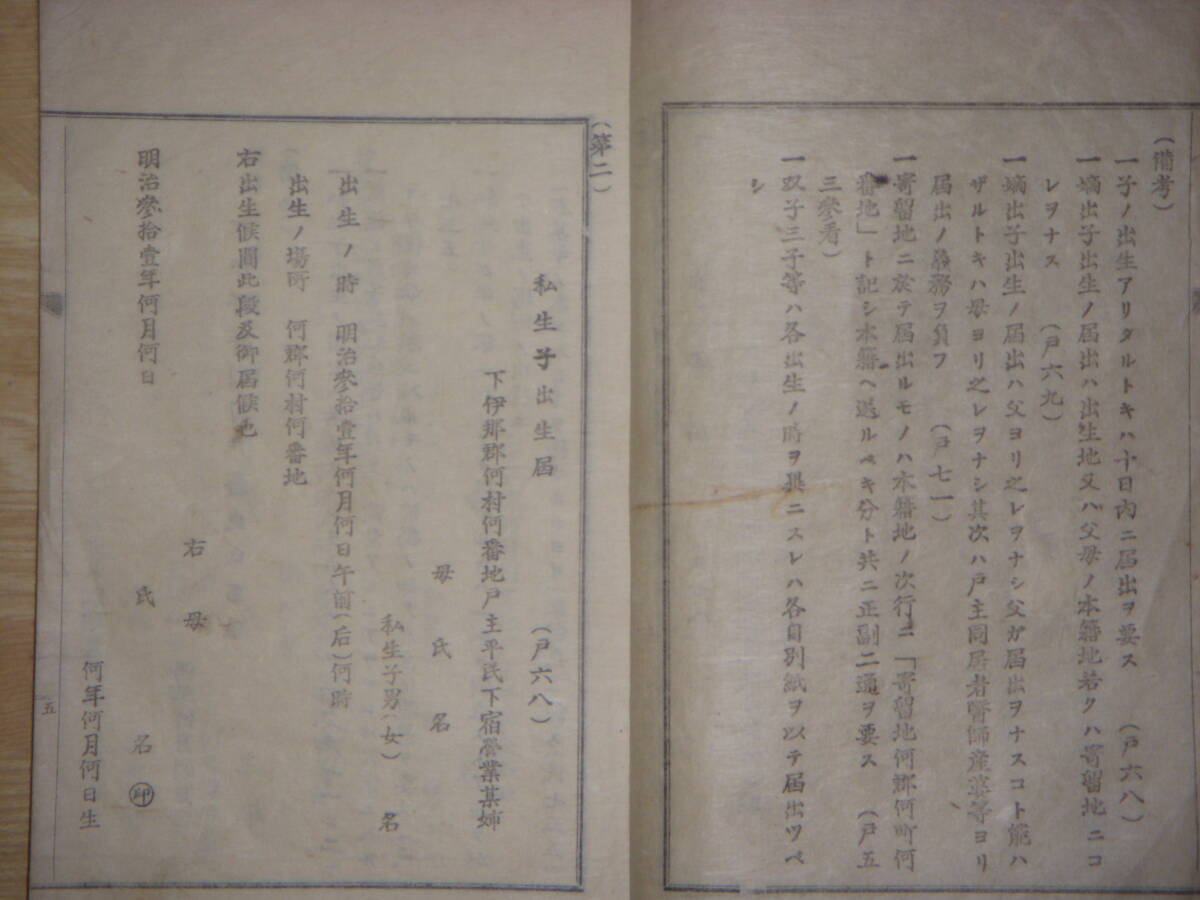 (備考)
一子ノ出生アリタルトキハ十日内ニ届出ヲ要ス (戸六八)
一嫡出子出生ノ届出ハ出生地又ハ父母ノ本籍地若クハ寄留地ニコ
レヲナス (戸六九)
一嫡出子出生ノ届出ハ父ヨリ之レヲナシ父ガ届出ヲナスコト能ハ
ザルトキハ母ヨリ之レヲナシ其次ハ戸主同居者醫師産婆等ヨリ
届出ノ義務ヲ負フ (戸七一)
一寄留地ニ於テ届出ルモノハ本籍地ノ次行ニ「寄留地何郡何町何
番地」ト記シ本籍ヘ送ルベキ分ト共ニ正副二通ヲ要ス (戸五
三參看)
一双子三子等ハ各出生ノ時ヲ異ニスレハ各自別紙ヲ以テ届出ツベ
シ
(第二)
私生子出生届 (戸六八)
下伊那郡何村何番地戸主平民下宿營業某姉
母 氏 名
私生子男(女) 名
出生ノ時 明治參拾壹年何月何日午前(后)何時
出生ノ場所 何郡何村何番地
右出生候間此段及御届候也
右 母
明治參拾壹年何月何日
氏 名 ㊞
何年何月何日生
五